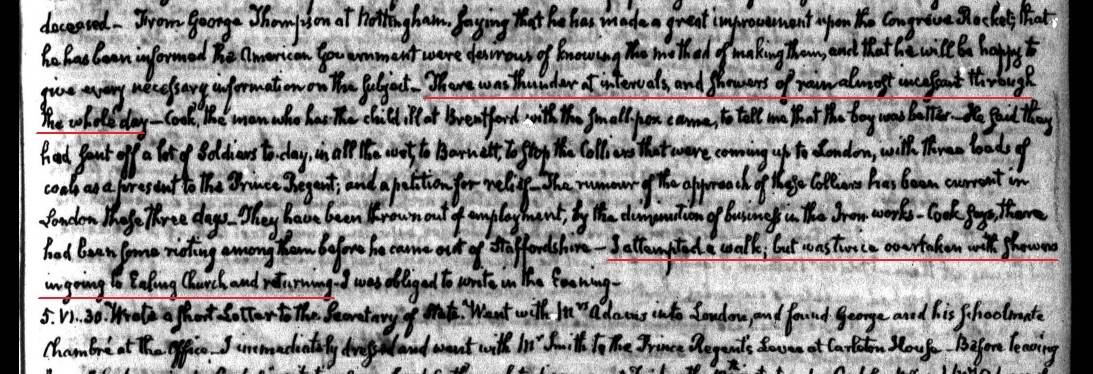 deceased— From George Thompson at Nottingham, saying that he has made a great improvement upon the Congreve Rocket; that
he has been informed the American Government were desirous of knowing the method of making them, and that he will be happy to
give every necessary information on the subject— There was thunder at intervals, and showers of rain almost incessant through
the whole day— Cook, the man who has the child ill at Brentford with the small-pox came, to tell me that the boy was better— He said they
had sent off a lot of Soldiers to-day, in all the wet, to Barnett, to stop the Colliers that were coming up to London, with three loads of
coals as a present to the Prince Regent; and a petition for relief— The rumour of the approach of these Colliers has been current in
London these three days— They have been thrown out of employment, by the diminution of business in the Iron works— Cook says, there
had been some rioting among them before he came out of Staffordshire— I attempted a walk; but was twice overtaken with showers
in going to Ealing Church and returning— I was obliged to write in the Evening—
5. VI..30. Wrote a short Letter to the Secretary of State. Went with Mrs Adams into London, and found George and his schoolmate
Chambré at the Office— I immediately dressed and went with Mr Smith to the Prince Regent's Levee at Carleton House— Before leaving